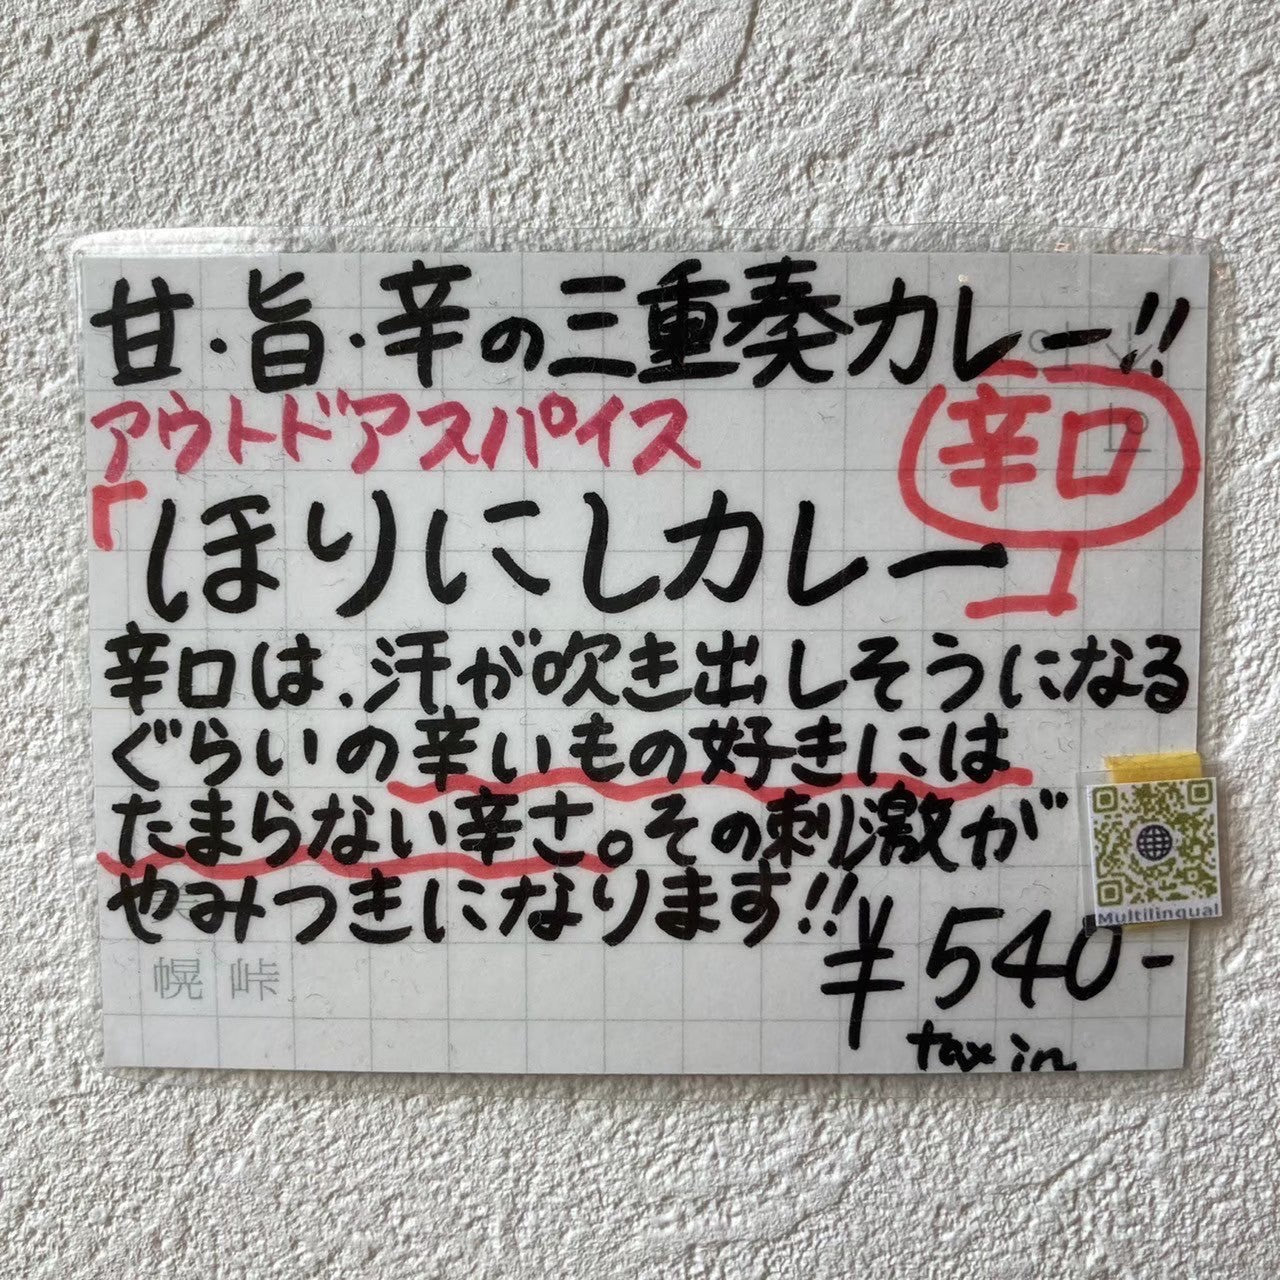 甘・旨・辛の三重奏カレー!!
アウトドアスパイス
辛口
「ほりにしカレー」
辛口は、汗が吹き出しそうになる
ぐらいの辛いもの好きには
たまらない辛さ。その刺激が
やみつきになります!!
Multilingual
¥540-
tax in
幌 峠